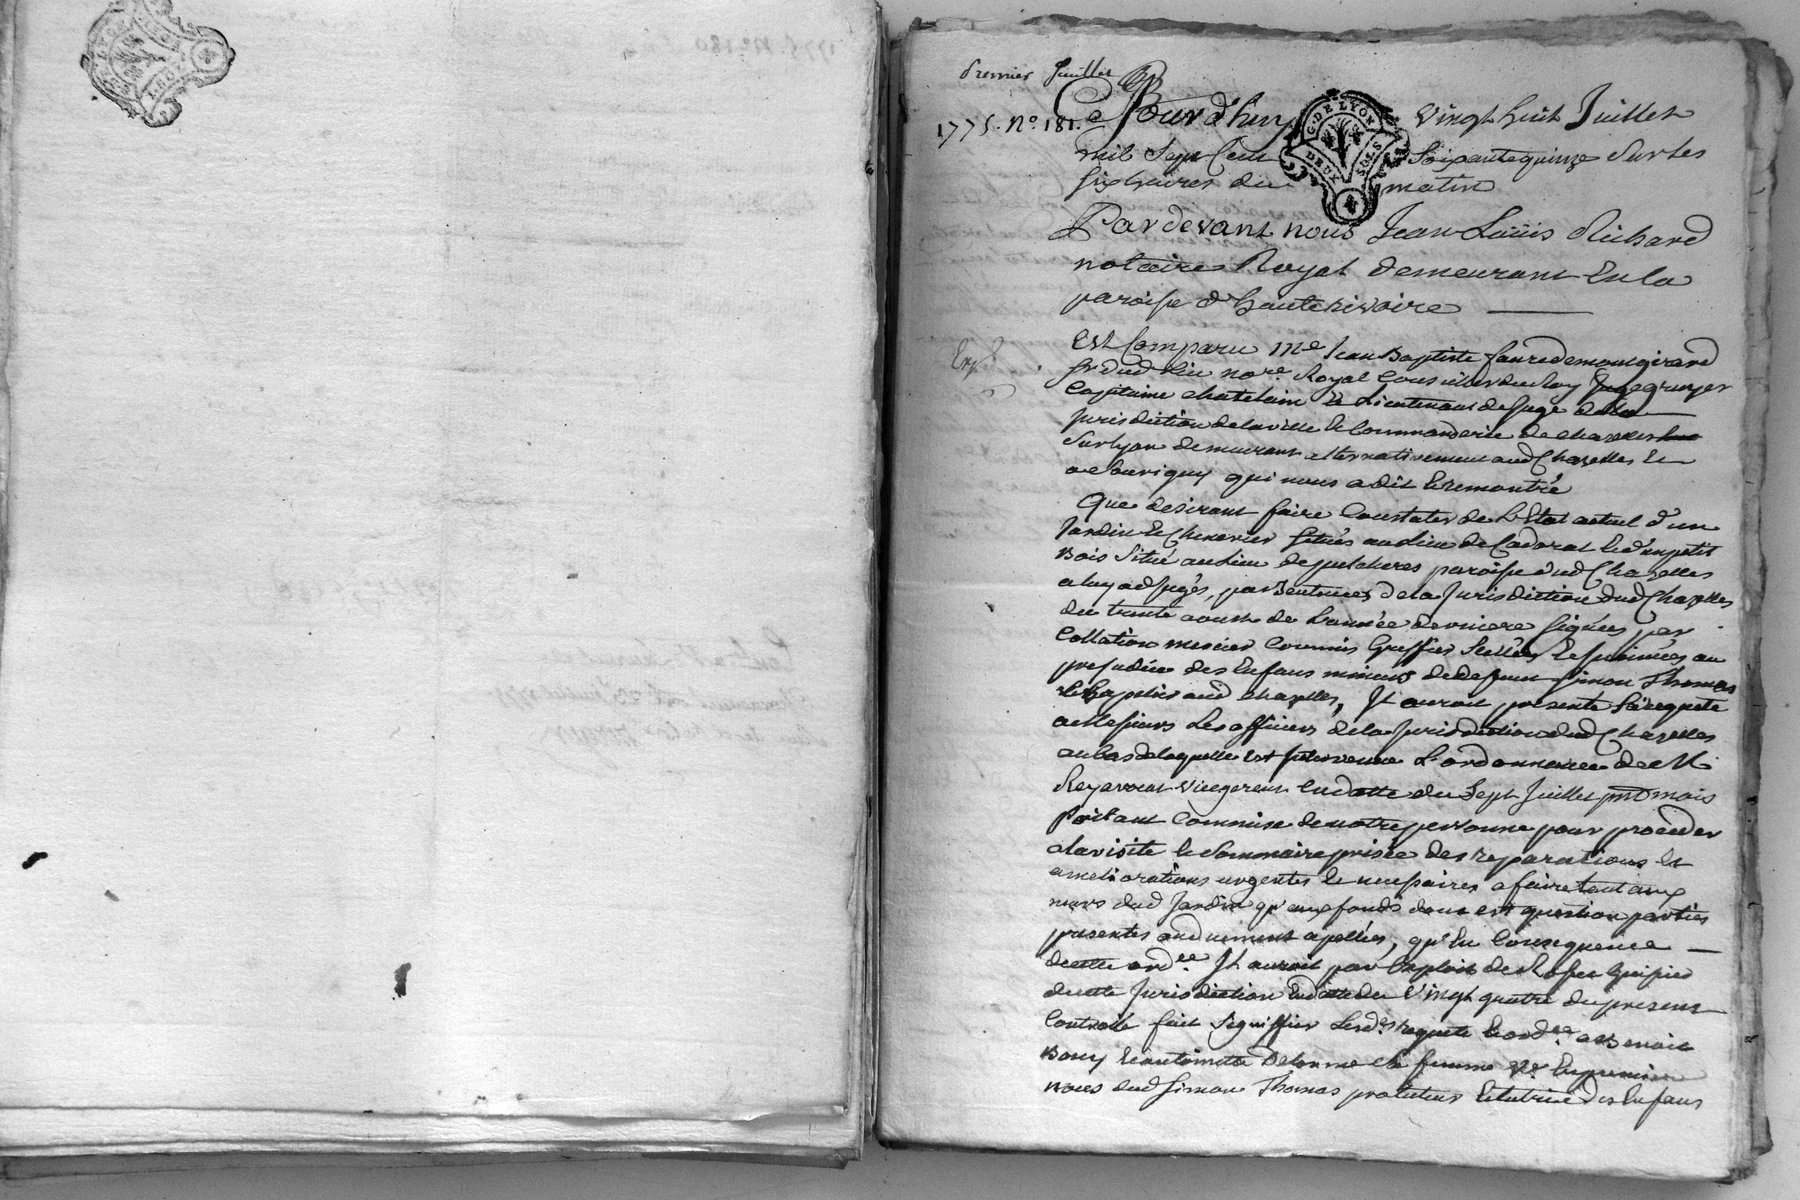 premier Juillet
1775. N.º 181.
G. DE LYON
DEUX SOLS
Ce Jourd'huy vingt huit Juillet
mil Sept Cent Soixante quinze Sur les
Six heures du matin
Pardevant nous Jean Loüis Richard
notaire Royal demeurant En la
paroisse d'hauterivoire
Est Comparu Me Jean Baptiste faure de montgirard
Sr dud. Lieu nore. Royal Conseiller du Roy Juge gruyer
Capitaine chatelain et Lieutenant de Juge de la
Jurisdiction de la ville et Commanderie de chazelles
Sur Lyon demeurant alternativement aud. Chazelles et
a qui nous a dit et remontré
Que desirant faire Constater de L'Etat actuel d'un
Jardin et Chenevier Situés au Lieu de Cadorat et d'un petit
Bois Situé au Lieu de paroisse dud. Chazelles
a luy adjugés, par Sentences de la Jurisdiction dud. Chazelles
du trente aoust de L'année derniere Signées par
Collation mercier Commis Greffier Scellées et au
prejudice des Enfans mineurs de defunt Simon Thomas
aud. chazelles, Il auroit presenté Sa requete
a Messieurs Les officiers de la Jurisdiction dud. Chazelles
au bas de laquelle Est Intervenue L'ordonnance de M.
Rey avocat Vicegerent En datte du Sept Juillet pnt mois
portant Commise de notre personne pour proceder
a la visite et Sommaire prisée des reparations et
ameliorations urgentes et necessaires a faire tant aux
murs dud. Jardin qu'aux fonds dont est question parties
presentes ou duement apellées, qu'En Consequence
de cette ordce. Il auroit par Exploit de huissier
de cette Jurisdiction En datte du Vingt quatre du present
Controllé fait Signiffier Lesd. requete et ordce. a Benoit
Bouy et antoinette Delorme Sa femme Ve. En premiere
noces dud. Simon Thomas protuteur et tutrice des Enfans